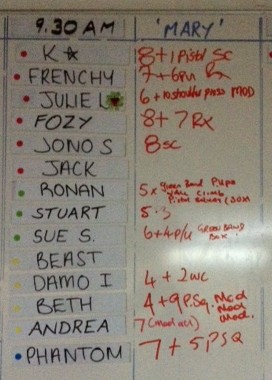 9.30 AM 'MARY'
K☆ 8+1 Pistol SC
FRENCHY 7+6PU Rx
JULIE L 6+10 shoulder press MOD
FOZY 8+7 Rx
JONO S 8SC
JACK
RONAN 5x Green Band Pups
wall climb
Pistol squats
STUART 5.3
SUE S. 6+4 P/U GREEN BAND
BEAST
DAMO I 4+2WC
BETH 4+9P.Sq. Mod
Mod
Mod.
ANDREA 7 (mod all)
PHANTOM 7+5PSQ